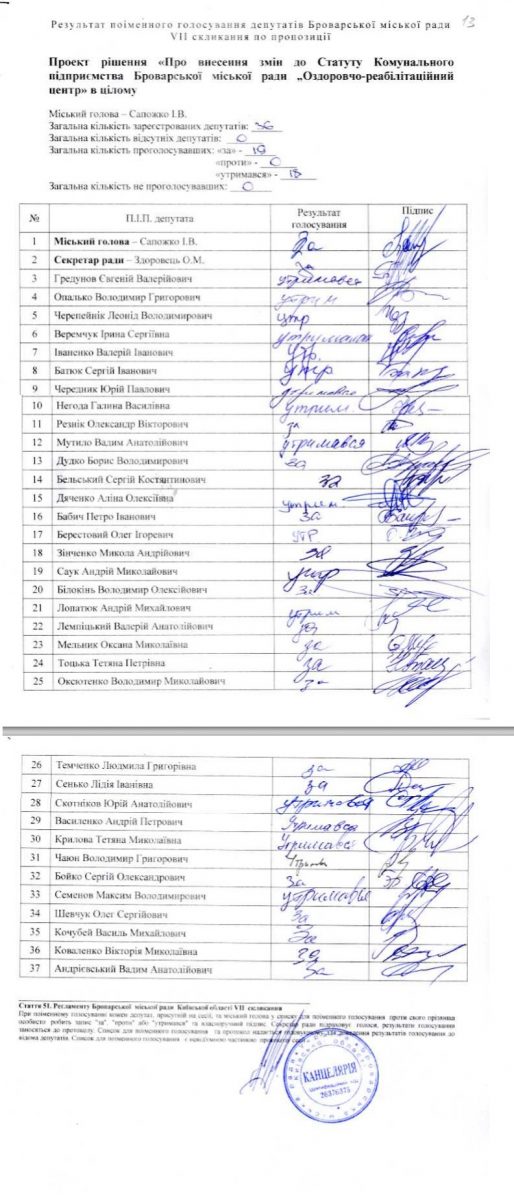 13
Результат поіменного голосування депутатів Броварської міської ради
VII скликання по пропозиції
Проект рішення «Про внесення змін до Статуту Комунального
підприємства Броварської міської ради „Оздоровчо-реабілітаційний
центр» в цілому
Міський голова – Сапожко І.В.
Загальна кількість зареєстрованих депутатів: 36
Загальна кількість відсутніх депутатів: 0
Загальна кількість проголосувавших: «за» - 19
«проти» - 0
«утримався» - 18
Загальна кількість не проголосувавших: 0
№ П.І.П. депутата Результат голосування Підпис
1 Міський голова – Сапожко І.В. За
2 Секретар ради – Здоровець О.М. за
3 Гредунов Євгеній Валерійович утримався
4 Опалько Володимир Григорович утрим
5 Черепейнік Леонід Володимирович утр
6 Веремчук Ірина Сергіївна утрималась
7 Іваненко Валерій Іванович утр.
8 Батюк Сергій Іванович утр
9 Чередник Юрій Павлович утримався
10 Негода Галина Василівна утрим.
11 Резнік Олександр Вікторович за
12 Мутило Вадим Анатолійович утримався
13 Дудко Борис Володимирович за
14 Бельський Сергій Костянтинович за
15 Дяченко Аліна Олексіївна утрим
16 Бабич Петро Іванович за
17 Берестовий Олег Ігоревич утр
18 Зінченко Микола Андрійович за
19 Саук Андрій Миколайович утр
20 Білокінь Володимир Олексійович за
21 Лопатюк Андрій Михайлович утрим
22 Лемпіцький Валерій Анатолійович за
23 Мельник Оксана Миколаївна за
24 Тоцька Тетяна Петрівна за
25 Оксютенко Володимир Миколайович за
26 Темченко Людмила Григорівна за
27 Сенько Лідія Іванівна за
28 Скотніков Юрій Анатолійович утримався
29 Василенко Андрій Петрович Утримався
30 Крилова Тетяна Миколаївна Утрималась
31 Чаюн Володимир Григорович
32 Бойко Сергій Олександрович За
33 Семенов Максим Володимирович утримався
34 Шевчук Олег Сергійович За
35 Кочубей Василь Михайлович За
36 Коваленко Вікторія Миколаївна за
37 Андрієвський Вадим Анатолійович За
Стаття 51. Регламенту Броварської міської ради Київської області VII скликання
При поіменному голосуванні кожен депутат, присутній на сесії, та міський голова у списку для поіменного голосування проти свого прізвища
особисто робить запис "за", "проти" або "утримався" та власноручний підпис. Секретар ради підраховує голоси, результати голосування
заносяться до протоколу. Список для поіменного голосування та протокол надається для доведення результатів голосування до
відома депутатів. Список для поіменного голосування є невід'ємною частиною протоколу сесії.
КАНЦЕЛЯРІЯ
26376375